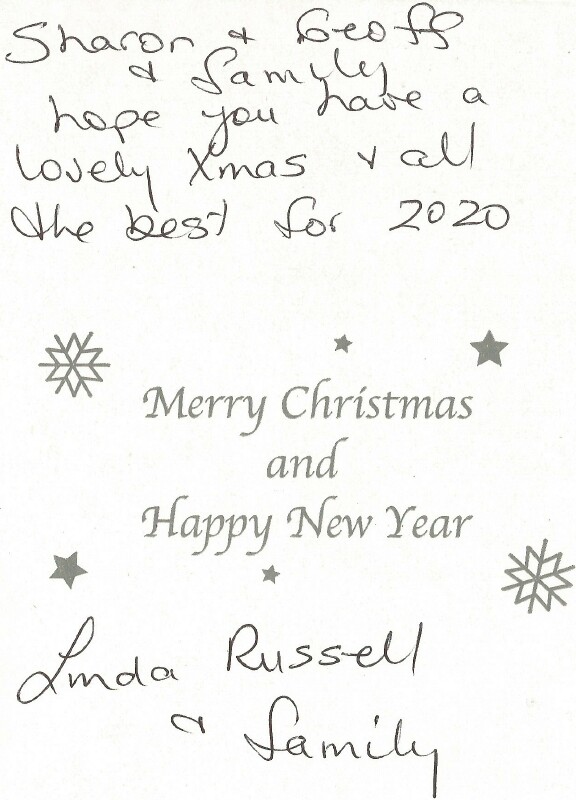 Sharon & Geoff
& family
hope you have a
lovely Xmas & all
the best for 2020
Merry Christmas
and
Happy New Year
Linda Russell
& family